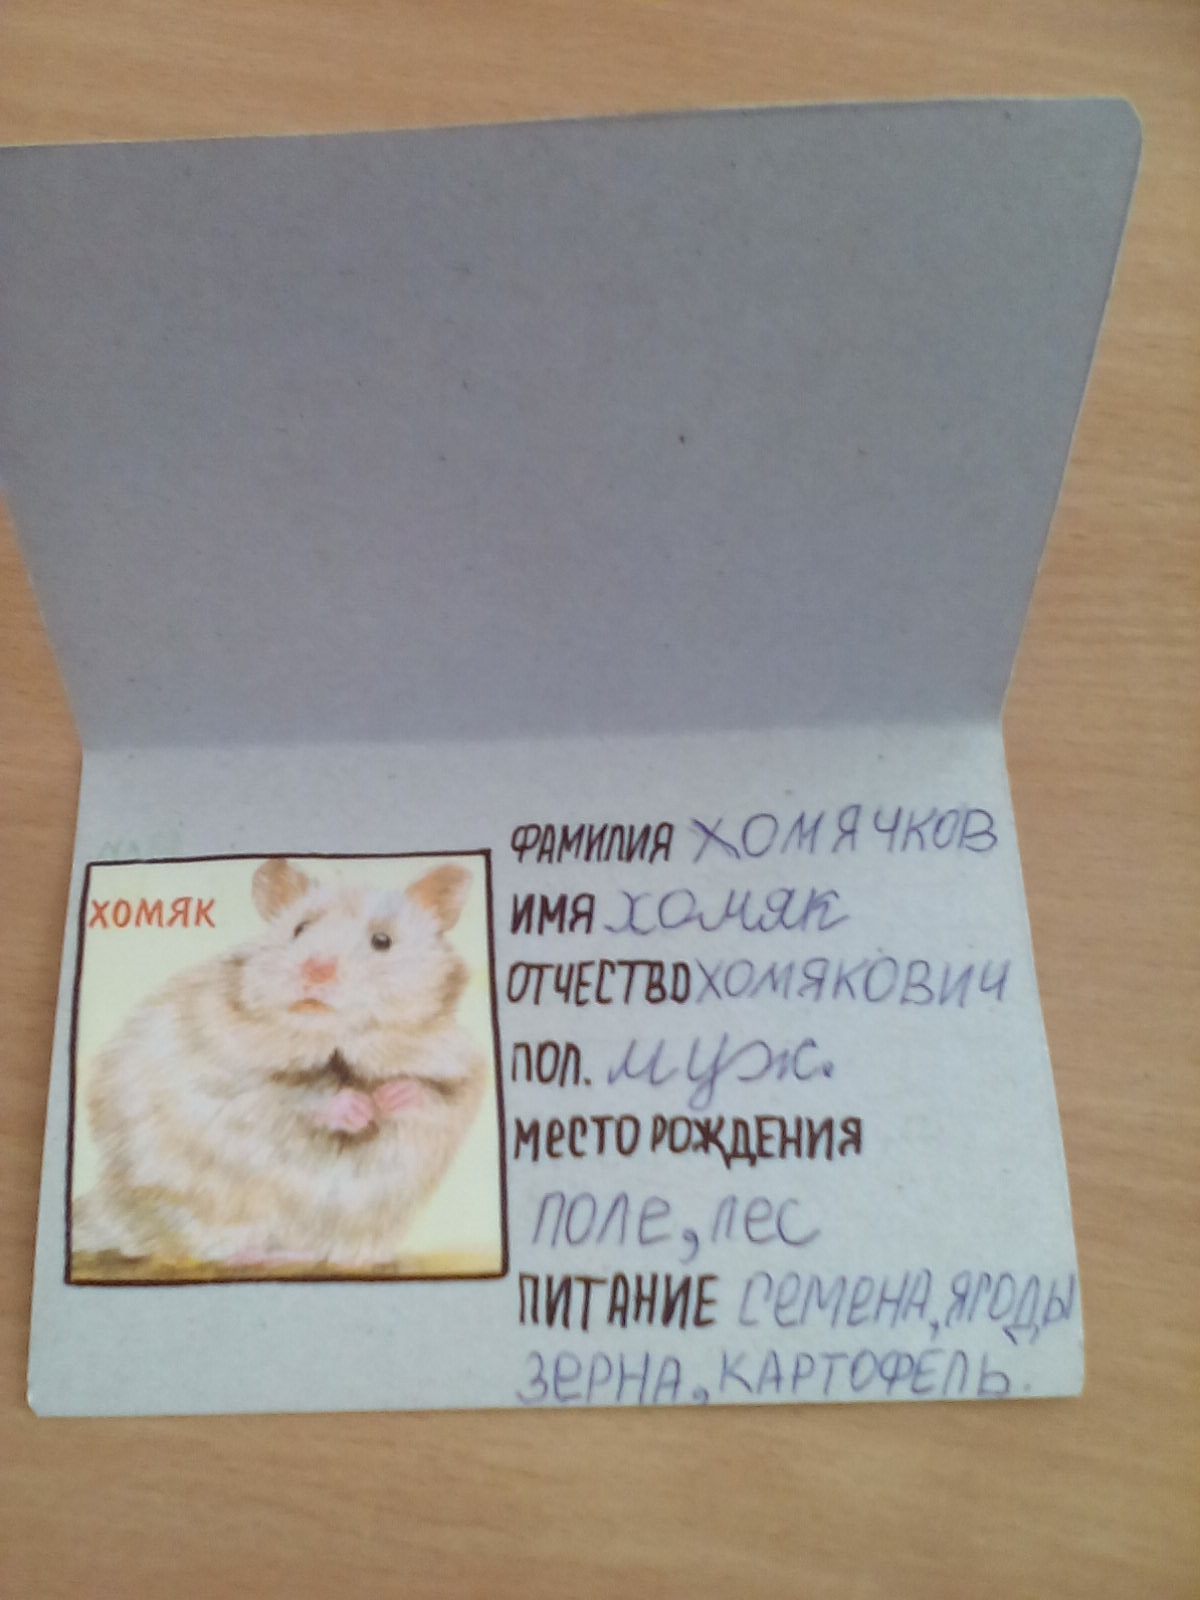 ХОМЯК
ФАМИЛИЯ ХОМЯЧКОВ
ИМЯ ХОМЯК
ОТЧЕСТВО ХОМЯКОВИЧ
ПОЛ. МУЖ.
МЕСТО РОЖДЕНИЯ
ПОЛЕ, ЛЕС
ПИТАНИЕ СЕМЕНА, ЯГОДЫ
ЗЕРНА, КАРТОФЕЛЬ.